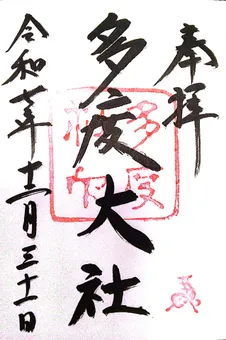 奉拝
多度大社
令和七年十二月三十一日
多度